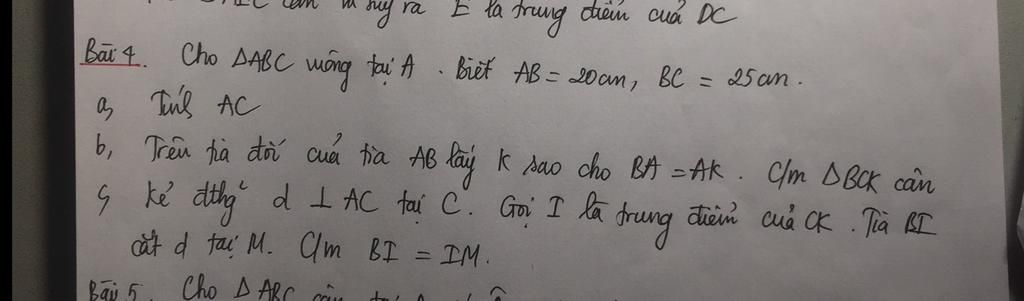 cân suy ra E là trung điểm cuả DC
Bài 4. Cho ΔABC vuông tại A. Biết AB = 20cm, BC = 25cm.
a, Tính AC
b, Trên tia đối cuả tia AB lấy K sao cho BA = AK. C/m ΔBCK cân
c, Kẻ đthg² d ⊥ AC tại C. Gọi I là trung điểm cuả CK. Tia BI
cắt d tại M. C/m BI = IM.
Bài 5. Cho ΔABC cân tại